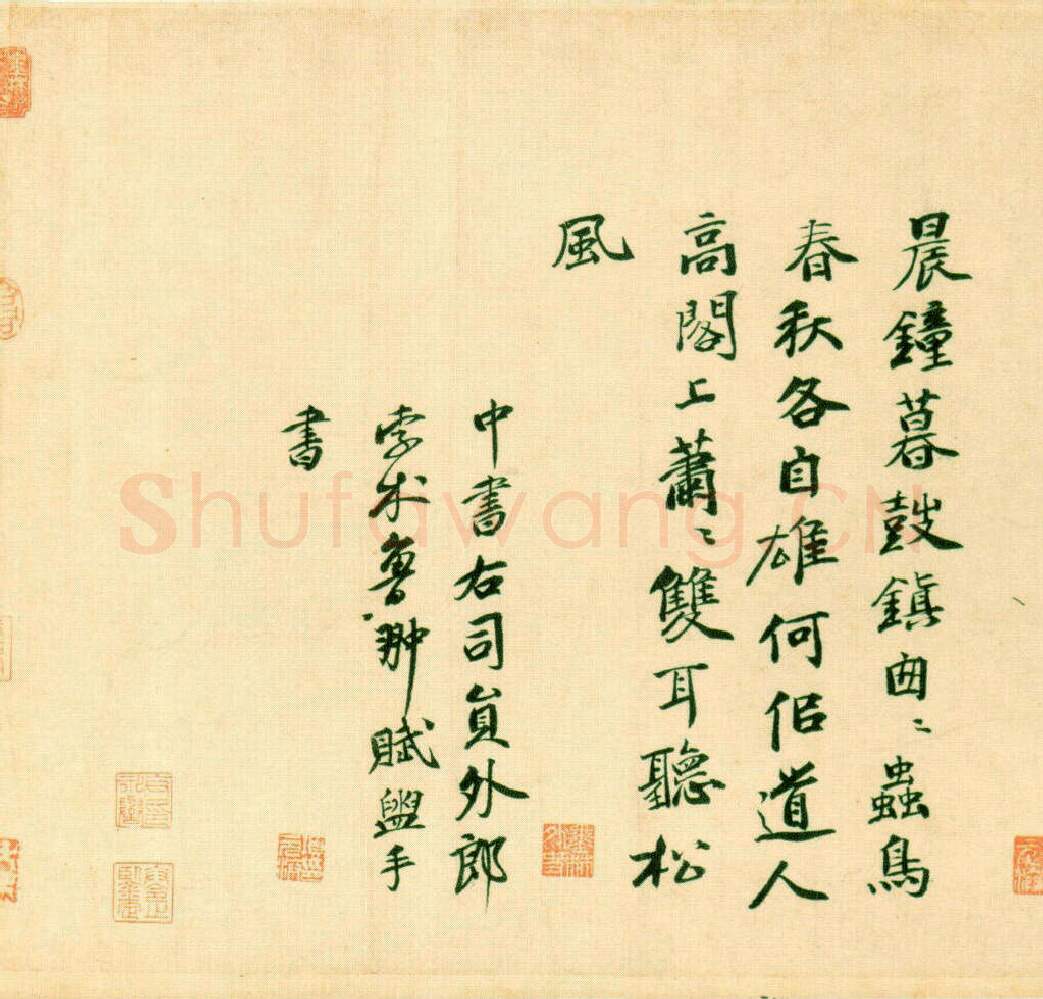 晨鐘暮鼓鎮匆〻蟲鳥
春秋各自雄何侶道人
高閣上蕭〻雙耳聽松
風
中書右司員外郎
孛朮魯翀賦盥手
書
Shufawang.CN